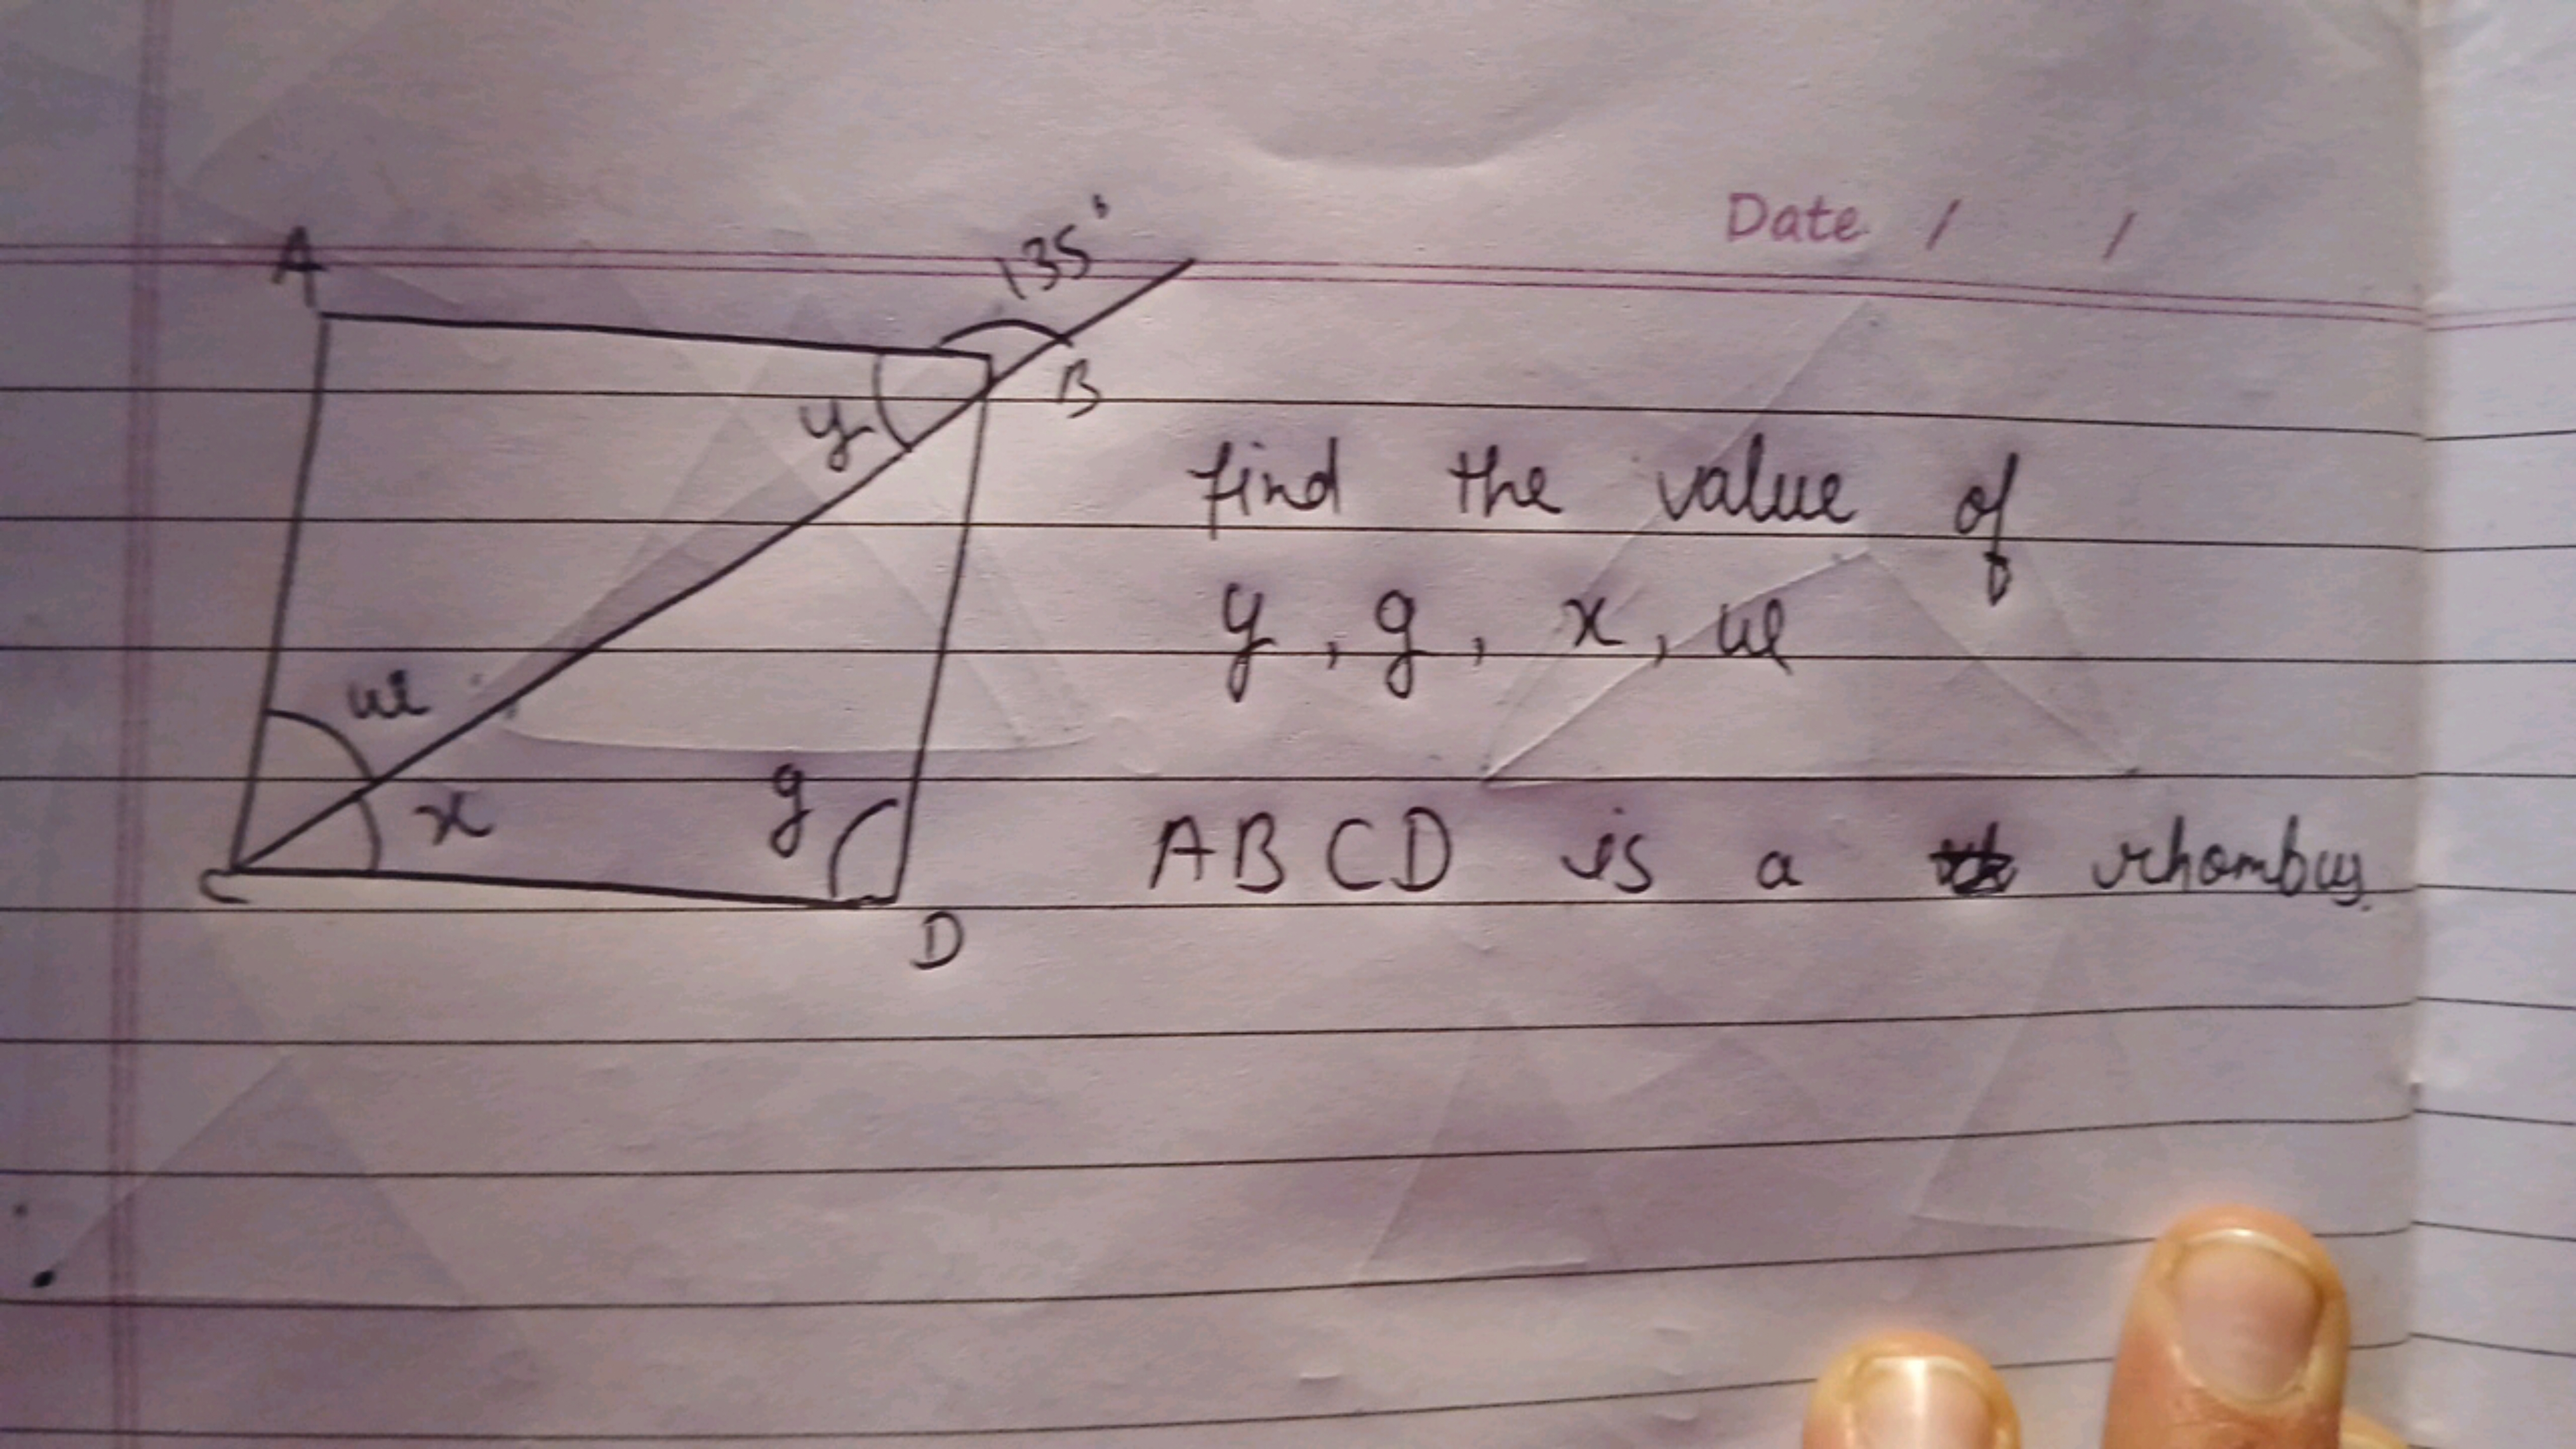 Date / /
135°
A
B
y
find the value of
y, g, x, w
w
g
x
ABCD is a rhombus.
C
D